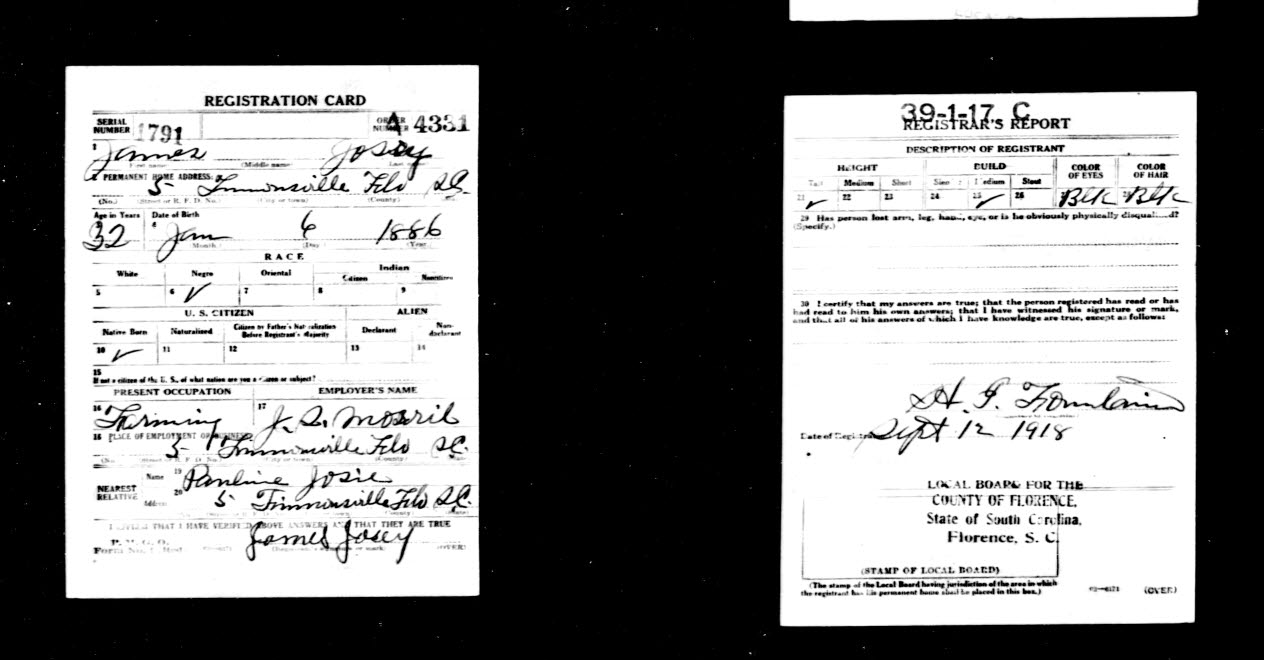 REGISTRATION CARD
SERIAL NUMBER 1791
ORDER NUMBER A 4331
1 James Josey
First name (Middle name) Last name
2 PERMANENT HOME ADDRESS:
5 Timmonsville Flo S.C.
(No.) (Street or R. F. D. No.) (City or town) (County) (State)
Age in Years Date of Birth
3 32 4 Jan 6 1886
(Month) (Day) (Year)
RACE
White Negro Oriental Indian
Citizen Noncitizen
5 6 ✓ 7 8 9
U. S. CITIZEN ALIEN
Native Born Naturalized Citizen by Father's Naturalization Before Registrant's Majority Declarant Non-declarant
10 ✓ 11 12 13 14
15
If not a citizen of the U. S., of what nation are you a citizen or subject?
PRESENT OCCUPATION EMPLOYER'S NAME
16 Farming 17 J. S.
18 PLACE OF EMPLOYMENT OR BUSINESS:
5 Timmonsville Flo S.C.
(No.) (Street or R. F. D. No.) (City or town) (County) (State)
NEAREST RELATIVE
Name 19 Pauline Josie
Address 20 5 Timmonsville Flo S.C.
I AFFIRM THAT I HAVE VERIFIED ABOVE ANSWERS AND THAT THEY ARE TRUE
P. M. G. O.
Form No. 1 James Josey
(Registrant's signature or mark) (OVER)
39-1-17 C
REGISTRAR'S REPORT
DESCRIPTION OF REGISTRANT
HEIGHT BUILD COLOR OF EYES COLOR OF HAIR
Tall Medium Short Slender Medium Stout
21 ✓ 22 23 24 25 ✓ 26 Blk 28 Blk
29 Has person lost arm, leg, hand, eye, or is he obviously physically disqualified?
(Specify.)
30 I certify that my answers are true; that the person registered has read or has
had read to him his own answers; that I have witnessed his signature or mark,
and that all of his answers of which I have knowledge are true, except as follows:
Date of Registration Sept 12 1918
LOCAL BOARD FOR THE
COUNTY OF FLORENCE,
State of South Carolina,
Florence, S. C.
(STAMP OF LOCAL BOARD)
(The stamp of the Local Board having jurisdiction of the area in which
the registrant has his permanent home shall be placed in this box.)
(OVER)